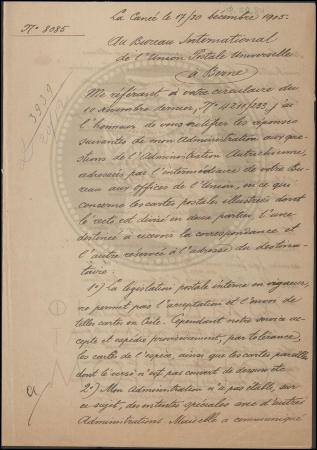 La Canée le 17/30 décembre 1905.
N° 8085
Au Bureau International
de l'Union Postale Universelle
à Berne
3939
Me référant à votre circulaire du
10 Novembre dernier, N° j'ai
l'honneur de vous notifier les réponses
suivantes de mon Administration aux ques-
tions de l'Administration Autrichienne,
adressées par l'intermédiaire de votre bu-
reau aux offices de l'Union, en ce que
concerne les cartes postales illustrées dont
le recto est divisé en deux parties, l'une
destinée à recevoir la correspondance et
l'autre réservée à l'adresse du destina-
taire.
1°) La législation postale interne en vigueur,
ne permet pas l'acceptation et l'envoi de
telles cartes en Crète. Cependant notre service ac-
cepte et expédie provisoirement, par tolérance,
les cartes de l'espèce, ainsi que les cartes pareilles
dont le verso n'est pas couvert de dessins etc.
2°) Mon Administration n'a pas établi, sur
ce sujet, des ententes spéciales avec d'autres
Administrations. Mais elle a communiqué